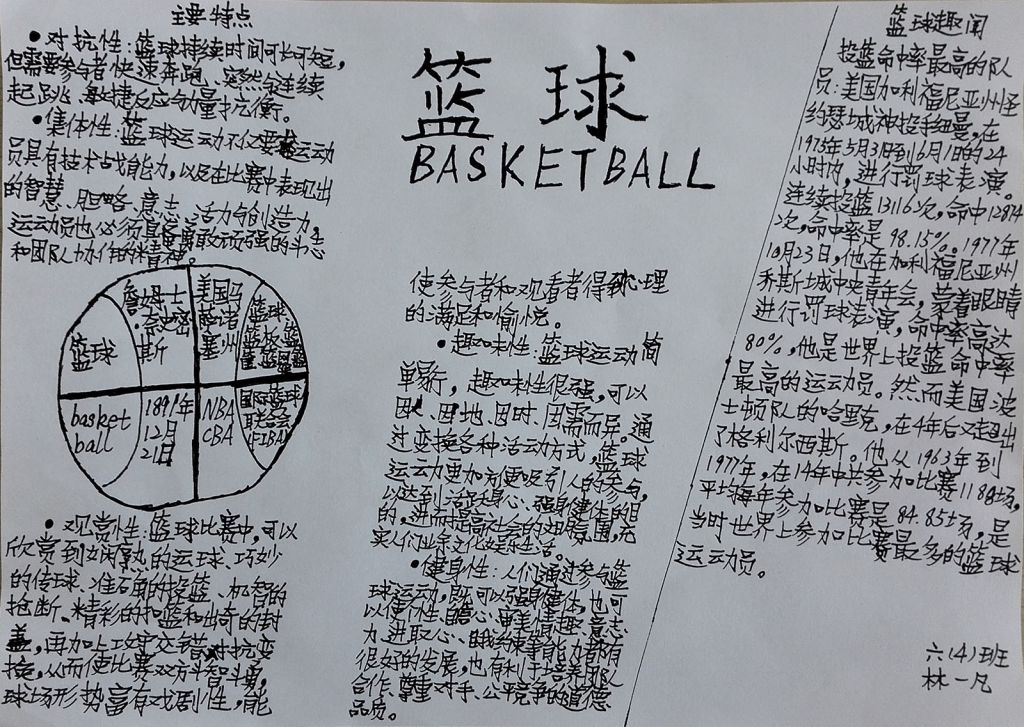 主要特点
•对抗性:篮球持续时间可长可短,
但需要参与者快速奔跑、突然与连续
起跳、敏捷反应与力量抗衡。
•集体性:篮球运动不仅要求运动
员具有技术战能力,以及在比赛中表现出
的智慧、胆略、意志、活力与创造力,
运动员也必须具备勇敢顽强的斗志
和团队协作的精神。
詹姆士
·奈史密
斯
美国马
萨诸
塞州
篮球
篮板篮
筐
篮球
basket
ball
1891年
12月
21日
NBA
CBA
国际篮球
联合会
FIBA
•观赏性:篮球比赛中,可以
欣赏到娴熟的运球、巧妙
的传球、准确的投篮、机智的
抢断、精彩的扣篮和出奇的封
盖,再加上攻守交错对抗变
换,从而使比赛双方斗智斗勇,
球场形势富有戏剧性,能
篮球
BASKETBALL
使参与者和观看者得到心理
的满足和愉悦。
•趣味性:篮球运动简
单易行,趣味性很强,可以
因人、因地、因时、因需而异。通
过变换各种活动方式,篮球
运动更加方便吸引人的参与,
以达到活跃身心、强身健体的目
的,进而提高社会的氛围,充
实人们业余文化娱乐生活。
•健身性:人们通过参与篮
球运动,既可以强身健体,也可
以使个性、自信心、审美情趣、意志
力、进取心、自我约束等能力都有
很好的发展,也有利于培养团队
合作、尊重对手、公平竞争的道德
品质。
篮球趣闻
投篮命中率最高的队
员:美国加利福尼亚州圣
约瑟城神投手纽曼,在
1975年5月31日到6月1日的24
小时内,进行罚球表演。
连续投篮13116次,命中12874
次,命中率是98.15%。1977年
10月23日,他在加利福尼亚州
乔斯城中央青年会,蒙着眼睛
进行罚球表演,命中率高达
80%,他是世界上投篮命中率
最高的运动员。然而美国波
士顿队的哈里克,在4年后又超出
了格利尔西斯。他从1963年到
1977年,在14年中共参加比赛1188场,
平均每年参加比赛是84.85场,是
当时世界上参加比赛最多的篮球
运动员。
六(4)班
林一凡